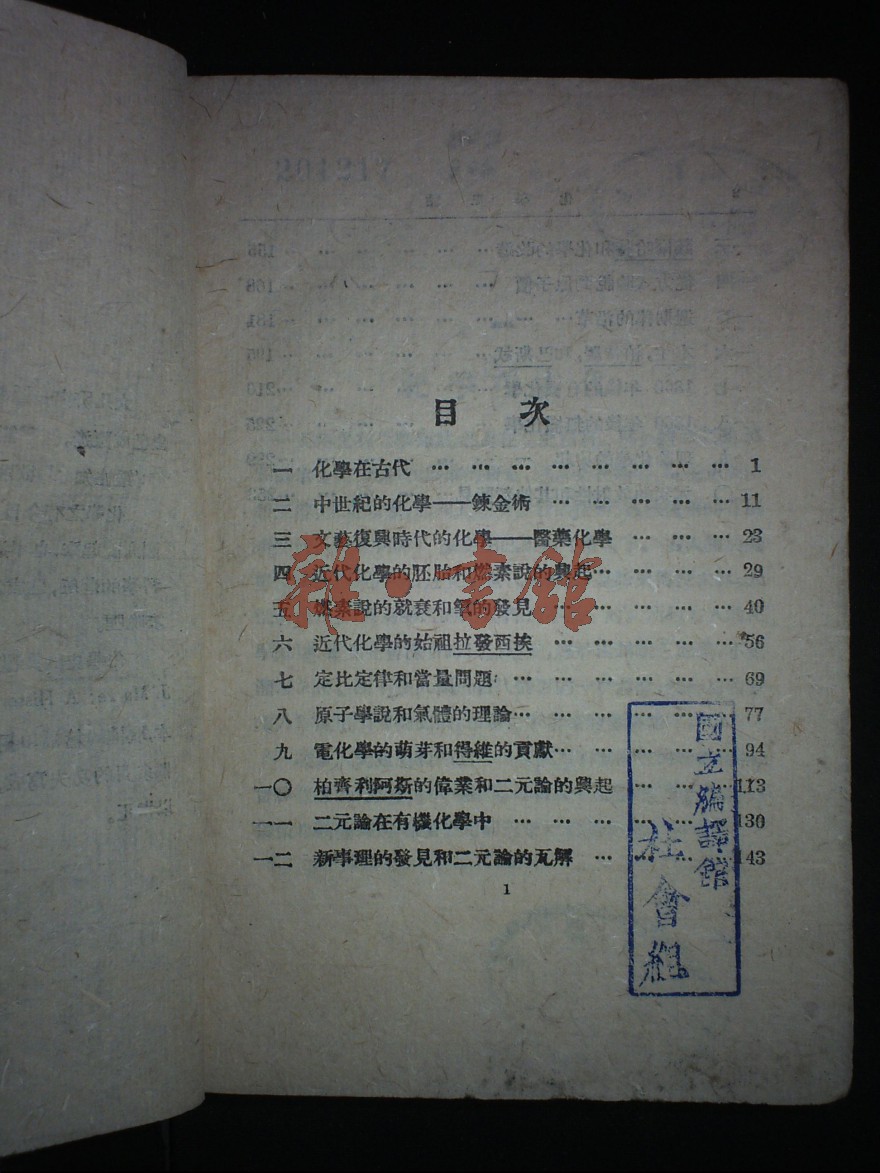 目次
一 化學在古代 … … … … … … … … 1
二 中世紀的化學——鍊金術 … … … … … 11
三 文藝復興時代的化學——醫藥化學 … … … 23
四 近代化學的胚胎和燃素說的興起… … … … 29
五 燃素說的就衰和氧的發見 … … … … … 40
六 近代化學的始祖拉發西挨 … … … … … 56
七 定比定律和當量問題 … … … … … … 69
八 原子學說和氣體的理論… … … … … … 77
九 電化學的萌芽和得維的貢獻… … … … … 94
一〇 柏齊利阿斯的偉業和二元論的興起 … … … 113
一一 二元論在有機化學中 … … … … … … 130
一二 新事理的發見和二元論的瓦解 … … … … 143
1
國立編譯館
社會組
雜·書館